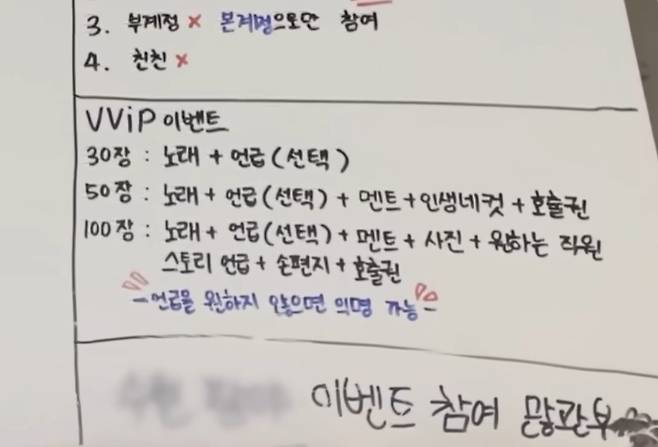 3. 부계정 × 본계정으로만 참여
4. 친친 ×
VViP 이벤트
30장 : 노래 + 언급 (선택)
50장 : 노래 + 언급 (선택) + 멘트 + 인생네컷 + 호출권
100장 : 노래 + 언급 (선택) + 멘트 + 사진 + 원하는 직원
스토리 언급 + 손편지 + 호출권
- 언급을 원하지 않으면 익명 가능 -
이벤트 참여 많관부